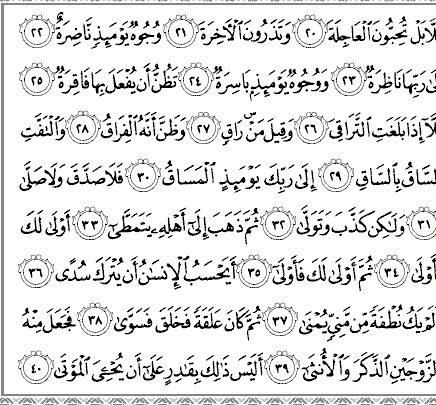 لَّا بَلْ تُحِبُّونَ ٱلْعَاجِلَةَ ٢٠ وَتَذَرُونَ ٱلْـَٔاخِرَةَ ٢١ وُجُوهٌ يَوْمَئِذٍ نَّاضِرَةٌ ٢٢
لَىٰ رَبِّهَا نَاظِرَةٌ ٢٣ وَوُجُوهٌ يَوْمَئِذٍۭ بَاسِرَةٌ ٢٤ تَظُنُّ أَن يُفْعَلَ بِهَا فَاقِرَةٌ ٢٥
لَّآ إِذَا بَلَغَتِ ٱلتَّرَاقِىَ ٢٦ وَقِيلَ مَنْ ۜ رَاقٍ ٢٧ وَظَنَّ أَنَّهُ ٱلْفِرَاقُ ٢٨ وَٱلْتَفَّتِ
لسَّاقُ بِٱلسَّاقِ ٢٩ إِلَىٰ رَبِّكَ يَوْمَئِذٍ ٱلْمَسَاقُ ٣٠ فَلَا صَدَّقَ وَلَا صَلَّىٰ
٣١ وَلَٰكِن كَذَّبَ وَتَوَلَّىٰ ٣٢ ثُمَّ ذَهَبَ إِلَىٰٓ أَهْلِهِۦ يَتَمَطَّىٰٓ ٣٣ أَوْلَىٰ لَكَ
أَوْلَىٰ ٣٤ ثُمَّ أَوْلَىٰ لَكَ فَأَوْلَىٰٓ ٣٥ أَيَحْسَبُ ٱلْإِنسَٰنُ أَن يُتْرَكَ سُدًى ٣٦
لَمْ يَكُ نُطْفَةً مِّن مَّنِىٍّ يُمْنَىٰ ٣٧ ثُمَّ كَانَ عَلَقَةً فَخَلَقَ فَسَوَّىٰ ٣٨ فَجَعَلَ مِنْهُ
لزَّوْجَيْنِ ٱلذَّكَرَ وَٱلْأُنثَىٰٓ ٣٩ أَلَيْسَ ذَٰلِكَ بِقَٰدِرٍ عَلَىٰٓ أَن يُحْـِۧىَ ٱلْمَوْتَىٰ ٤٠